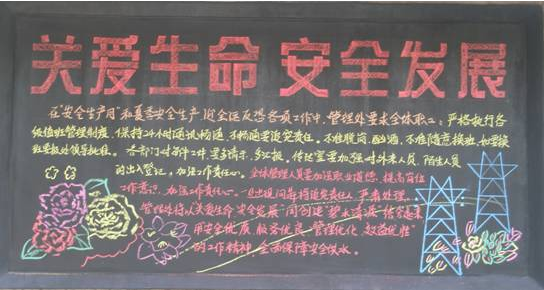 关爱生命 安全发展
在"安全生产月"和夏季安全生产,迎全运反恐各项工作中,管理处要求全体职工:严格执行各
级值班管理制度,保持24小时通讯畅通,不畅通要追究责任。不准脱岗,酗酒,不准随意换班,如要换
班要报处领导批准。各部门对邮件工件,要多请示,多汇报,传达室要加强对外来人员,陌生人员
的出入登记,加强工作责任心。全体管理人员要加强职业道德,提高岗位
工作意识,加强工作责任心。出现问题将追究责任人,严肃处理。
管理处将以"关爱生命 安全发展"同创建
用安全优质 服务优良 管理优化 效益优胜"
的工作精神,全面保障安全供水。